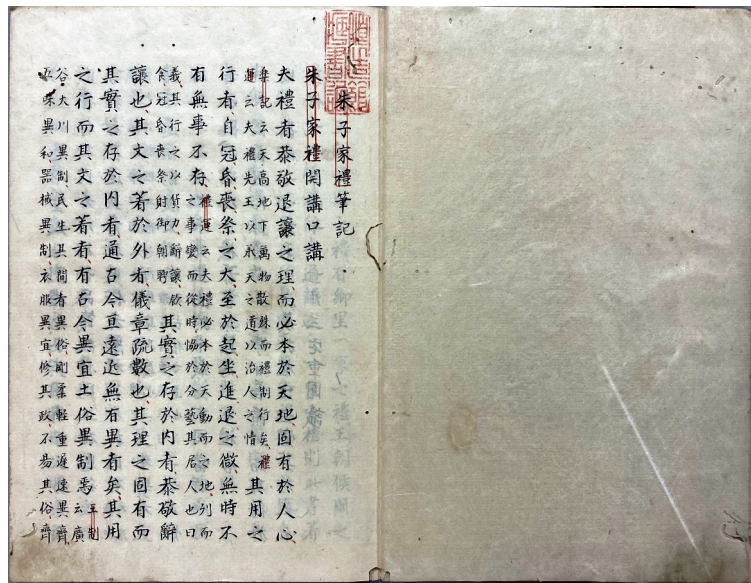 朱子家禮筆記
朱子家禮開講口講
夫禮者恭敬退讓之理而必本於天地固有於人心
樂記云天高地下萬物散殊而禮制行矣禮
運云夫禮先王以承天之道以治人之情
其用之
行者自冠昏喪祭之大至於起坐進退之微無時不
有無事不存
禮運云夫禮必本於天動而之地列而
之事變而從時協於分藝其居人也曰
義其行之以貨力辭讓飲
食冠昏喪祭射御朝聘
其實之存於内者恭敬辭
讓也其文之著於外者儀章疏數也其理之固有而
其實之存於内者通古今亘遠迩無有異者矣其用
之行而其文之著者有古今異宜土俗異制焉
王制
云廣
谷大川異制民生其間者異俗剛柔輕重遲速異齊
五味異和器械異制衣服異宜修其政不易其俗齊